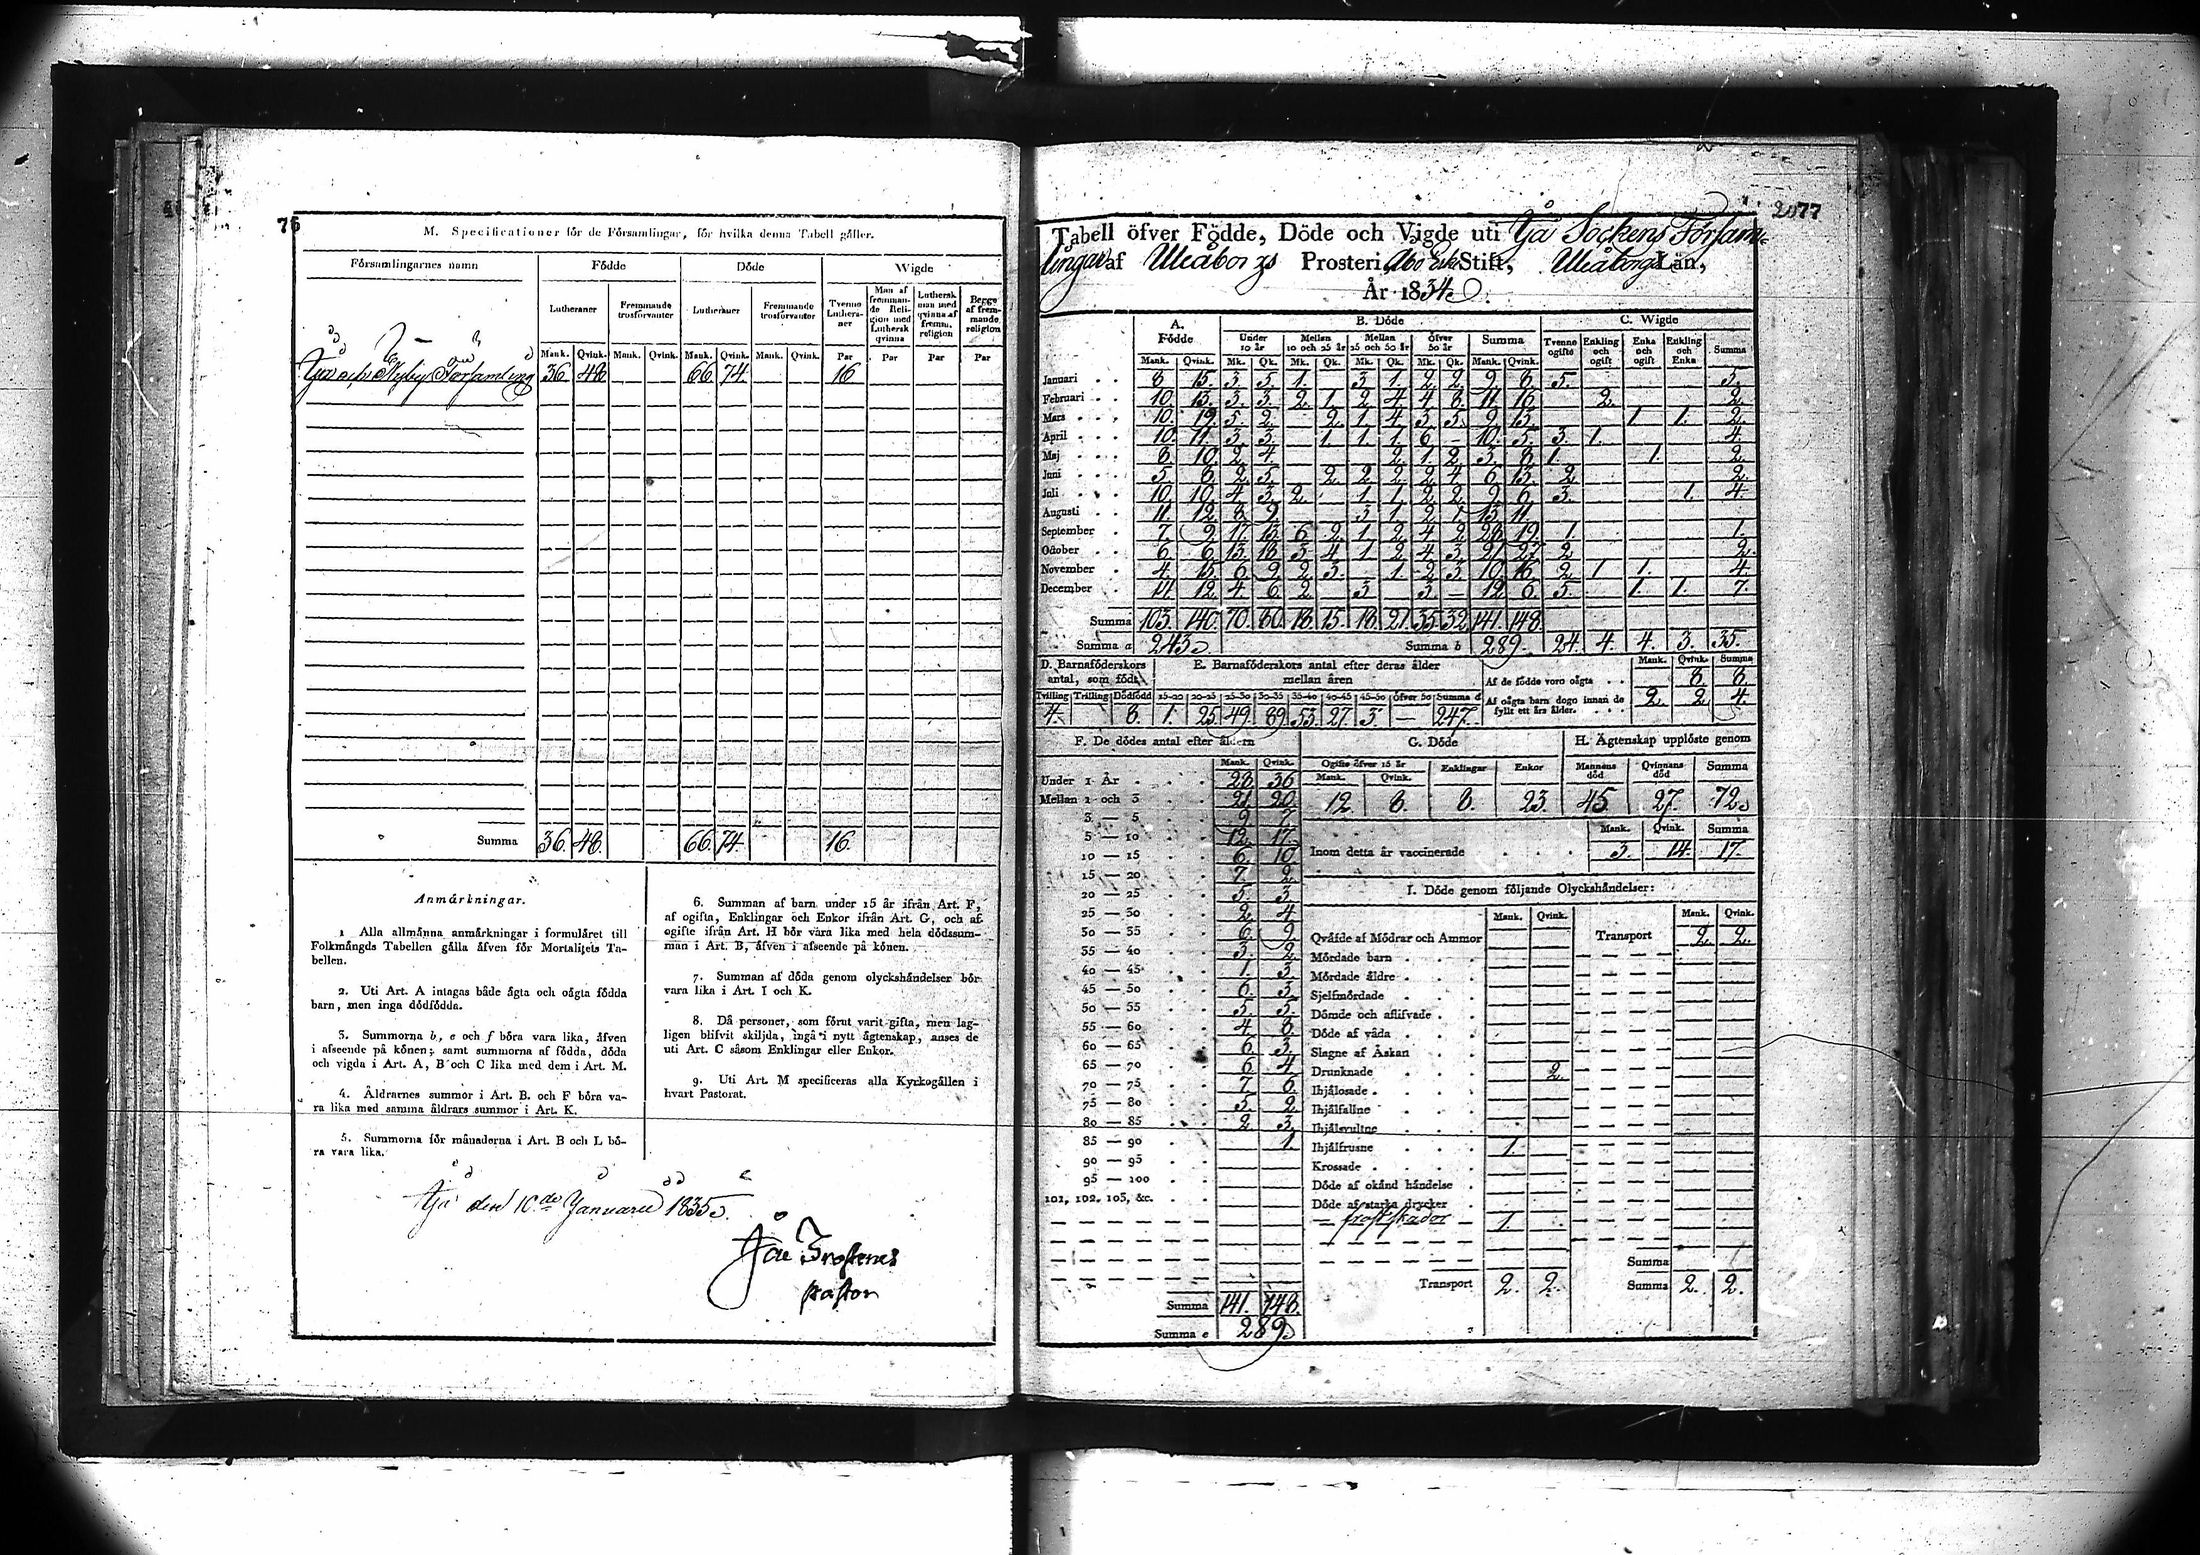 76
M. Specificationer för de Församlingar, för hvilka denna Tabell gäller.
Församlingarnes namn Födde Döde Wigde
Lutheraner Fremmande trosförvanter Lutheraner Fremmande trosförvanter Tvenne Lutheraner Man af fremmande Religion med Luthersk qvinna Luthersk man med qvinna af fremm. religion Begge af fremmande religion
Mank. Qvink. Mank. Qvink. Mank. Qvink. Mank. Qvink. Par Par Par Par
Församling 36 48 66. 74. 16
Summa 36. 48. 66. 74. 16.
Anmärkningar.
1 Alla allmänna anmärkningar i formuläret till
Folkmängds Tabellen gälla äfven för Mortalitets Ta-
bellen.
2. Uti Art. A intagas både ägta och oägta födda
barn, men inga dödfödda.
3. Summorna b, e och f böra vara lika, äfven
i afseende på könen; samt summorna af födda, döda
och vigda i Art. A, B och C lika med dem i Art. M.
4. Åldrarnes summor i Art. B. och F böra va-
ra lika med samma åldrars summor i Art. K.
5. Summorna för månaderna i Art. B och L bö-
ra vara lika.
6. Summan af barn under 15 år ifrån Art. F,
af ogifta, Enklingar och Enkor ifrån Art. G, och af
ogifte ifrån Art. H bör vara lika med hela dödssum-
man i Art. B, äfven i afseende på könen.
7. Summan af döda genom olyckshändelser bör
vara lika i Art. I och K.
8. Då personer, som förut varit gifta, men lag-
ligen blifvit skiljda, ingå i nytt ägtenskap, anses de
uti Art. C såsom Enklingar eller Enkor.
9. Uti Art. M specificeras alla Kyrkogällen i
hvart Pastorat.
den 10de Januarii 1835.
pastor
77
Tabell öfver Födde, Döde och Vigde uti Ijå Sockens Försam-
lingar af Uleåborgs Prosteri, Åbo Stift, Uleåborgs Län,
År 1834.
A. Födde B. Döde C. Wigde
Under 10 år Mellan 10 och 25 år Mellan 25 och 50 år Öfver 50 år Summa Tvenne ogifte Enkling och ogift Enka och ogift Enkling och Enka Summa
Mank. Qvink. Mk. Qk. Mk. Qk. Mk. Qk. Mk. Qk. Mank. Qvink.
Januari 8 15. 3 3. 1. 3 1. 2 2. 9 8. 5. 5.
Februari 10. 13. 3. 3. 2. 1. 2 4 4 8. 11 16 2. 2.
Mars 10. 19. 5. 2. 2. 1. 4. 3. 5. 9. 13. 1 1. 2.
April 10. 11. 3. 3. 1. 1. 1. 6 – 10. 5. 3. 1. 4.
Maj 8 10. 2 4. 2. 1. 2. 3. 8 1. 1. 2.
Juni 5. 8. 2. 5. 2. 2. 2. 2. 4 6. 13. 2. 2.
Juli 10. 10. 4 3. 2. 1. 1. 2 2. 9. 6. 3. 1. 4.
Augusti 11. 12. 8 9. 3 1 2 1 13. 11.
September 7. 9. 17. 13. 6 2 1. 2. 4 2. 28. 19. 1. 1.
October 6. 6. 13. 18 3. 4 1 2 4 3. 21. 27. 2 2.
November 4. 15. 6. 9. 2. 3. 1. 2 3. 10. 16. 2. 1 1. 4.
December 14. 12. 4. 6. 2. 3 3. – 12. 6. 5. 1. 1. 7.
Summa 103. 140. 70. 80. 18. 15. 18. 21. 35. 32. 141. 148.
Summa a 243. Summa b 289. 24. 4. 4. 3. 35.
D. Barnaföderskors antal, som födt E. Barnaföderskors antal efter deras ålder mellan åren Mank. Qvink. Summa
Af de födde voro oägta 8. 8.
Tvilling Trilling Dödfödd 15–20 20–25 25–30 30–35 35–40 40–45 45–50 öfver 50 Summa d
4. 8. 1. 25. 49. 89. 53. 27. 3 – 247.
Af oägta barn dogo innan de fyllt ett års ålder. 2. 2. 4.
F. De dödes antal efter åldern G. Döde H. Ägtenskap upplöste genom
Mank. Qvink. Ogifte öfver 15 år Enklingar Enkor Mannens död Qvinnans död Summa
Mank. Qvink.
12 8. 8. 23. 45. 27. 72.
Mank. Qvink. Summa
Inom detta år vaccinerade 3. 14. 17.
Under 1 År 28. 36
Mellan 1 och 3 21. 20.
3 — 5 9 7.
5 — 10 12. 17.
10 — 15 6. 10
15 — 20 7. 2.
20 — 25 5. 3.
25 — 30 2. 4
30 — 35 6. 9.
35 — 40 3. 2.
40 — 45 1. 3.
45 — 50 6. 3.
50 — 55 5. 5.
55 — 60 4 8.
60 — 65 6. 3.
65 — 70 6 4
70 — 75 7. 6.
75 — 80 5. 2.
80 — 85 2 3.
85 — 90 1.
90 — 95
95 — 100
101, 102, 103, &c.
Summa 141. 148.
Summa e 289.
I. Döde genom följande Olyckshändelser:
Mank. Qvink. Mank. Qvink.
Qväfde af Mödrar och Ammor Transport 2. 2.
Mördade barn
Mördade äldre
Sjelfmördade
Dömde och aflifvade
Döde af våda
Slagne af Åskan
Drunknade 2.
Ihjälosade
Ihjälfallne
Ihjälsvultne
Ihjälfrusne 1.
Krossade
Döde af okänd händelse
Döde af starka drycker
frostskador 1.
Summa
Transport 2. 2. Summa 2. 2.